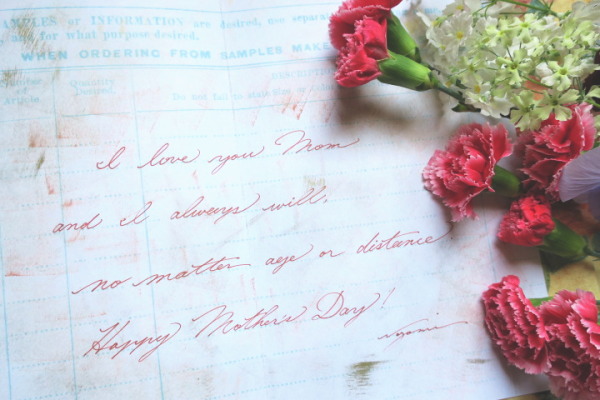 SAMPLES or INFORMATION are desired, use separat
and for what purpose desired.
WHEN ORDERING FROM SAMPLES MAKE
Number of Article
Quantity Desired
DESCRIPTION
Do not fail to state size
I love you Mom
and I always will,
no matter age or distance
Happy Mother's Day!